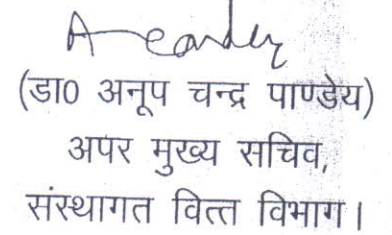 (डा0 अनूप चन्द्र पाण्डेय)
अपर मुख्य सचिव,
संस्थागत वित्त विभाग।